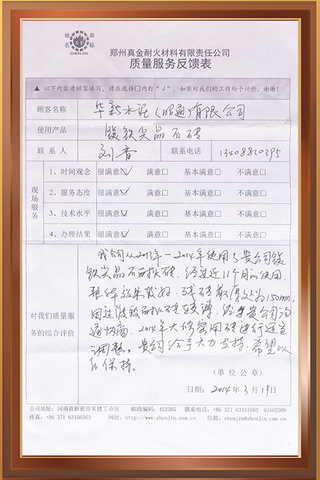 驰名商标
ZHENJIN
郑州真金耐火材料有限责任公司
质量服务反馈表
▲以下内容请顾客填写,请在选择□内打"√",如实对我们的工作给予评价,谢谢!
顾客名称 华新水泥(昭通)有限公司
使用产品 镁铁尖晶石砖
联系人 刘香 联系电话 13408810395
现场服务
1、时间观念 很满意☑ 满意□ 基本满意□ 不满意□
2、服务态度 很满意☑ 满意□ 基本满意□ 不满意□
3、技术水平 很满意☑ 满意□ 基本满意□ 不满意□
4、办理结果 很满意☑ 满意□ 基本满意□ 不满意□
对我们质量服务的综合评价
我司从2013年-2014年使用了贵公司镁
铁尖晶石砖,经过近11个月的使用,
整体效果 残砖 厚度为150mm,
贵公司沟
通 2014年大修 用砖进行适当
调整。贵司给予大力支持,希望以
后保持。
(单位公章)
日期:2014年3月19日
公司地址:河南省新密市来集工业区 邮政编码:452385 联系电话:+86 371 63151003 63162589
传真:+86 371 63156362 http://www.zhenjin.com.cn E-mail:zhenjin@zhenjin.com.cn